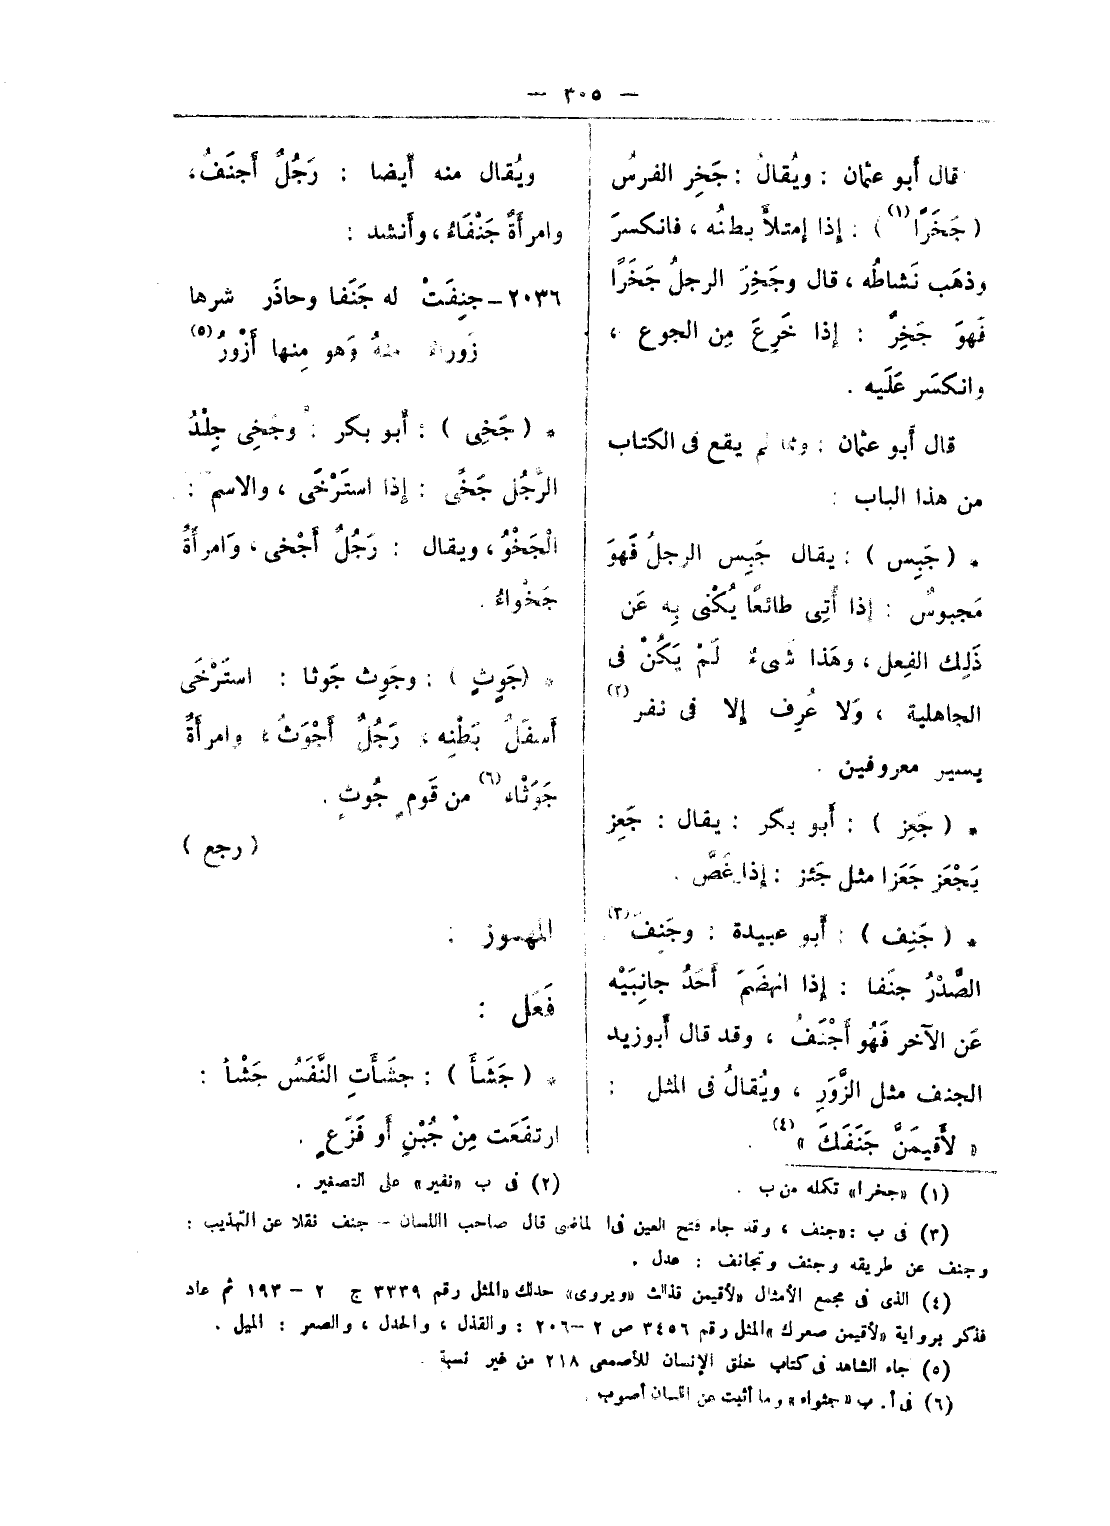 — ٣٠٥ —
قال أَبو عثمان : ويُقالُ : جَخِر الفرسُ
( جَخَرًا (١) ) : إذا إمتلأَ بطنُه ، فانكسرَ
وذهَب نَشاطُه ، قال وجَخِرَ الرجلُ جَخَرًا
فَهوَ جَخِرٌ : إذا خَرِعَ مِن الجوع ،
وانكسَر عَلَيه .
قال أَبو عثمان : ومما لم يقع فى الكتاب
من هذا الباب :
* ( جَبِس ) : يقال جَبِس الرجلُ فَهوَ
مَجبوسٌ : إذا أُتِى طائعًا يُكْنى بِه عَن
ذَلِك الفِعل ، وهَذا شَىءٌ لَمْ يَكُنْ فى
الجاهلية ، وَلا عُرِف إلا فى نفر (٢)
يسير معروفين .
* ( جَعِز ) : أَبو بكر : يقال : جَعِز
يَجْعَز جَعَزا مثل جَئز : إذا غَصَّ .
* ( جَنِف ) : أَبو عبيدة : وجَنِف (٣)
الصَّدْرُ جنَفا : إذا انهضَمَ أَحَدُ جانِبَيْه
عَن الآخر فَهُو أَجْنَفُ ، وقد قال أَبوزيد
الجنف مثل الزَّوَرِ ، ويُقالُ فى المثل :
« لأَقيمَنَّ جَنَفَكَ » (٤) .
ويُقال منه أَيضا : رَجُلٌ أَجنَفُ ،
وامرأَةٌ جَنْفَاءُ ، وأَنشد :
٢٠٣٦ – جنِفَتْ له جَنَفا وحاذَر شرها
زَوراءُ منهُ وَهو مِنها أَزْورُ (٥)
* ( جَخِى ) : أَبو بكر : وجَخِى جِلْدُ
الرَّجُل جَخًى : إذا استَرْخَى ، والاسم :
الْجَخْوُ ، ويقال : رَجُلٌ أَجْخى ، وَامرأَةٌ
جَخْواءُ .
* ( جَوِثٍ ) : وجَوِث جَوثا : استَرْخَى
أَسفَلُ بَطْنِه ، رَجُلٌ أَجْوَثُ ، وامرأَةٌ
جَوَثْاء (٦) من قَومٍ جُوثٍ .
( رجع )
المهموز :
فَعَل :
* ( جَشَأَ ) : جشَأَتِ النَّفَسُ جَشْأ :
ارتفَعَت مِنْ جُبْنٍ أَو فَزَعٍ .
(١) «جخرا» تكمله من ب .
(٢) فى ب «نفير» على التصغير .
(٣) فى ب : «جنف ، وقد جاء فتح العين فى الماضى قال صاحب االلسان – جنف نقلا عن التهذيب :
وجنف عن طريقه وجنف وتجانف : عدل .
(٤) الذى فى مجمع الأمثال «لأقيمن قذالك «ويروى» حدلك «المثل رقم ٣٣٣٩ ج ٢ – ١٩٣ ثم عاد
فذكر برواية «لأقيمن صعرك» المثل رقم ٣٤٥٦ ص ٢ –٢٠٦ : والقذل ، والحدل ، والصعر : الميل .
(٥) جاء الشاهد فى كتاب خلق الإنسان للأصمعى ٢١٨ من غير نسبة .
(٦) فى أ . ب « جثواء » وما أثبت عن اللسان أصوب .